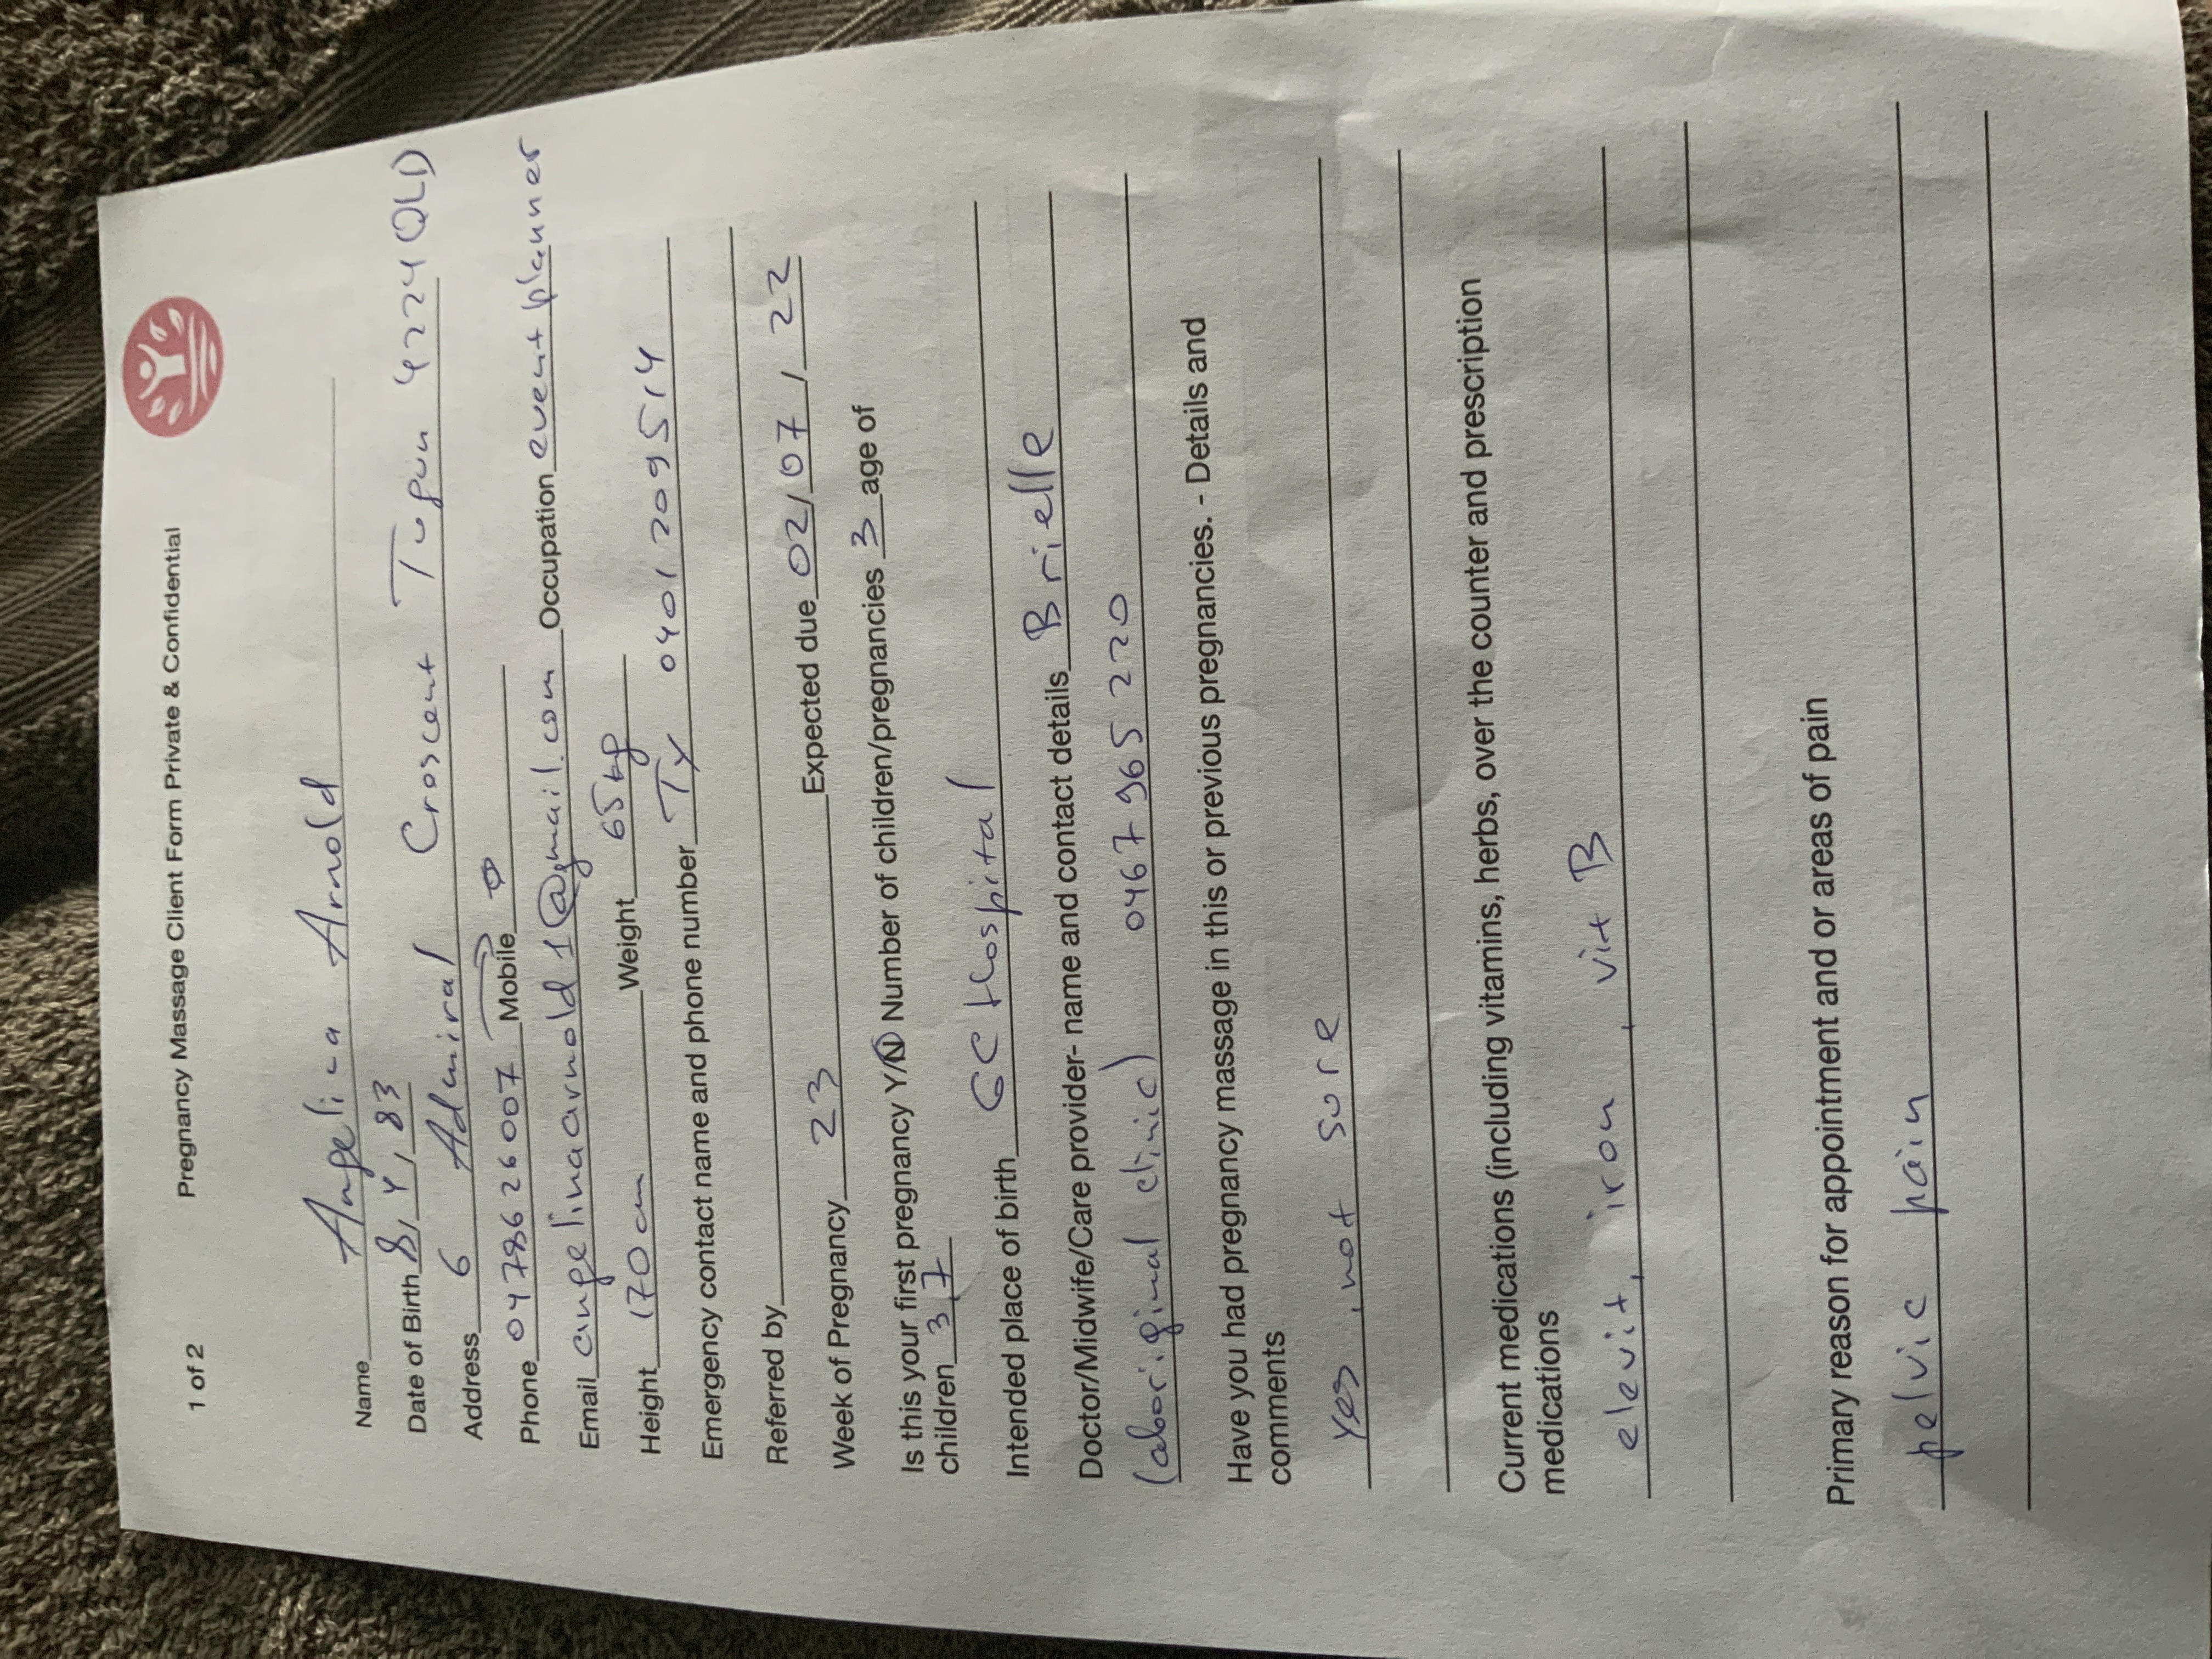 1 of 2 Pregnancy Massage Client Form Private & Confidential
Name Angelica Arnold
Date of Birth 8, 4, 83
Address 6 Admiral Croscent Tugun 4224 QLD
Phone 0478626007 Mobile
Email angelinaarnold1@gmail.com Occupation event planner
Height 170cm Weight 65kg
Emergency contact name and phone number Ty 0401209514
Referred by
Week of Pregnancy 23 Expected due 02/07/22
Is this your first pregnancy Y/N Number of children/pregnancies 3 age of
children 3,7
Intended place of birth GC Hospital
Doctor/Midwife/Care provider- name and contact details Brielle
(aboriginal clinic) 0467965220
Have you had pregnancy massage in this or previous pregnancies. - Details and
comments
yes, not sure
Current medications (including vitamins, herbs, over the counter and prescription
medications
elevit, iron, vit B
Primary reason for appointment and or areas of pain
pelvic pain